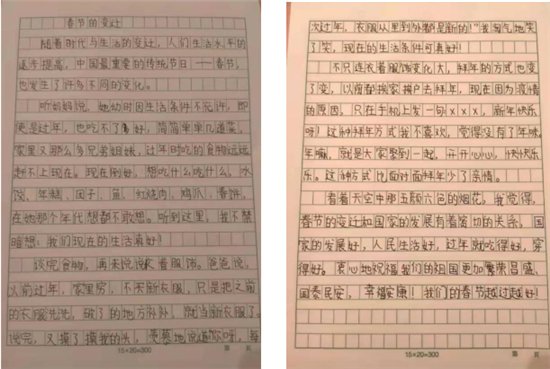 春节的变迁
随着时代与生活的变迁，人们生活水平的
逐步提高，中国最重要的传统节日——春节，
也发生了许多不同的变化。
听妈妈说，她幼时因生活条件不允许，即
便是过年，也吃不了多好，简简单单几道菜，
家里又那么多兄弟姐妹，过年时吃的食物远远
赶不上现在。现在刚好，想吃什么吃什么，水
饺、年糕、团子、鱼、红烧肉、鸡爪、春饼，
在她那个年代想都不敢想。听到这里，我不禁
暗想：我们现在的生活真好！
谈完食物，再来说说衣着服饰。爸爸说，
以前过年，家里穷，不买新衣服，只是把之前
的衣服洗洗，破了的地方补补，就当新衣服了。
说完，又摸了摸我的头，羡慕地说道：你呀，每
15×20=300
第 页
次过年，衣服从里到外都是新的！”我淘气地笑
了笑，现在的生活条件可真好！
不只连衣着服饰变化大，拜年的方式也变
了变，以前都挨家挨户去拜年，现在因为疫情
的原因，只在手机上发一句xxx，新年快乐
呀！这种拜年方式我不喜欢，觉得没有了年味，
年嘛，就是大家聚到一起，开开心心，快快乐
乐。这种方式比面对面拜年少了亲情。
看着天空中那五颜六色的烟花，我觉得，
春节的变迁和国家的发展有着密切的关系，国
家的发展好，人民生活好，过年就吃得好，穿
得好。衷心地祝福我们的祖国更加繁荣昌盛、
国泰民安，幸福安康！我们的春节越过越好！
15×20=300
第 页